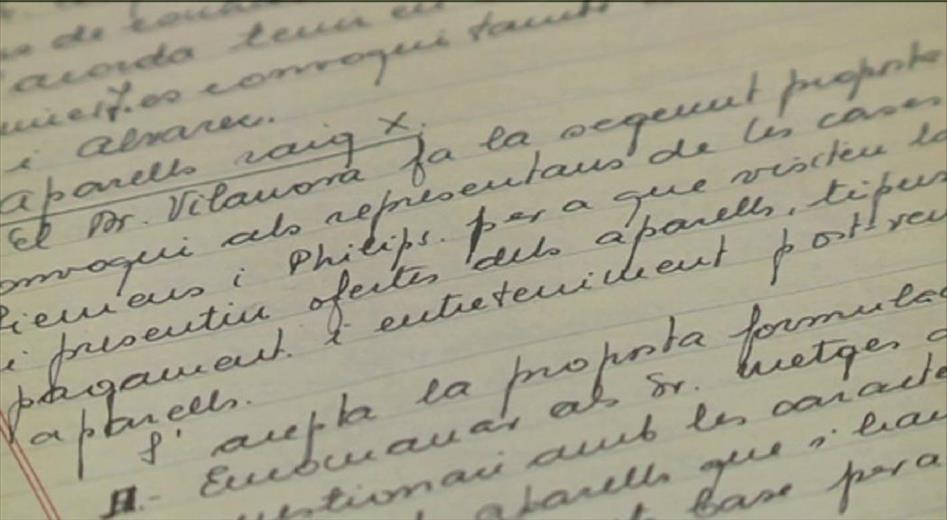 de
acorda tenir en
es convoqui també
i Alvarez.
Aparells raig X.
El Dr. Vilanova fa la seguent proposta
convoqui als representans de les cases
Siemens i Philips. per a que visiten la
i presentin ofertes dels aparells, tipus
pagament i entreteniment post-ven
aparells.
S' acepta la proposta formulad
II - Encomanar als Sr. metges
questionari amb les caracte
aparells que s'hau
base per a